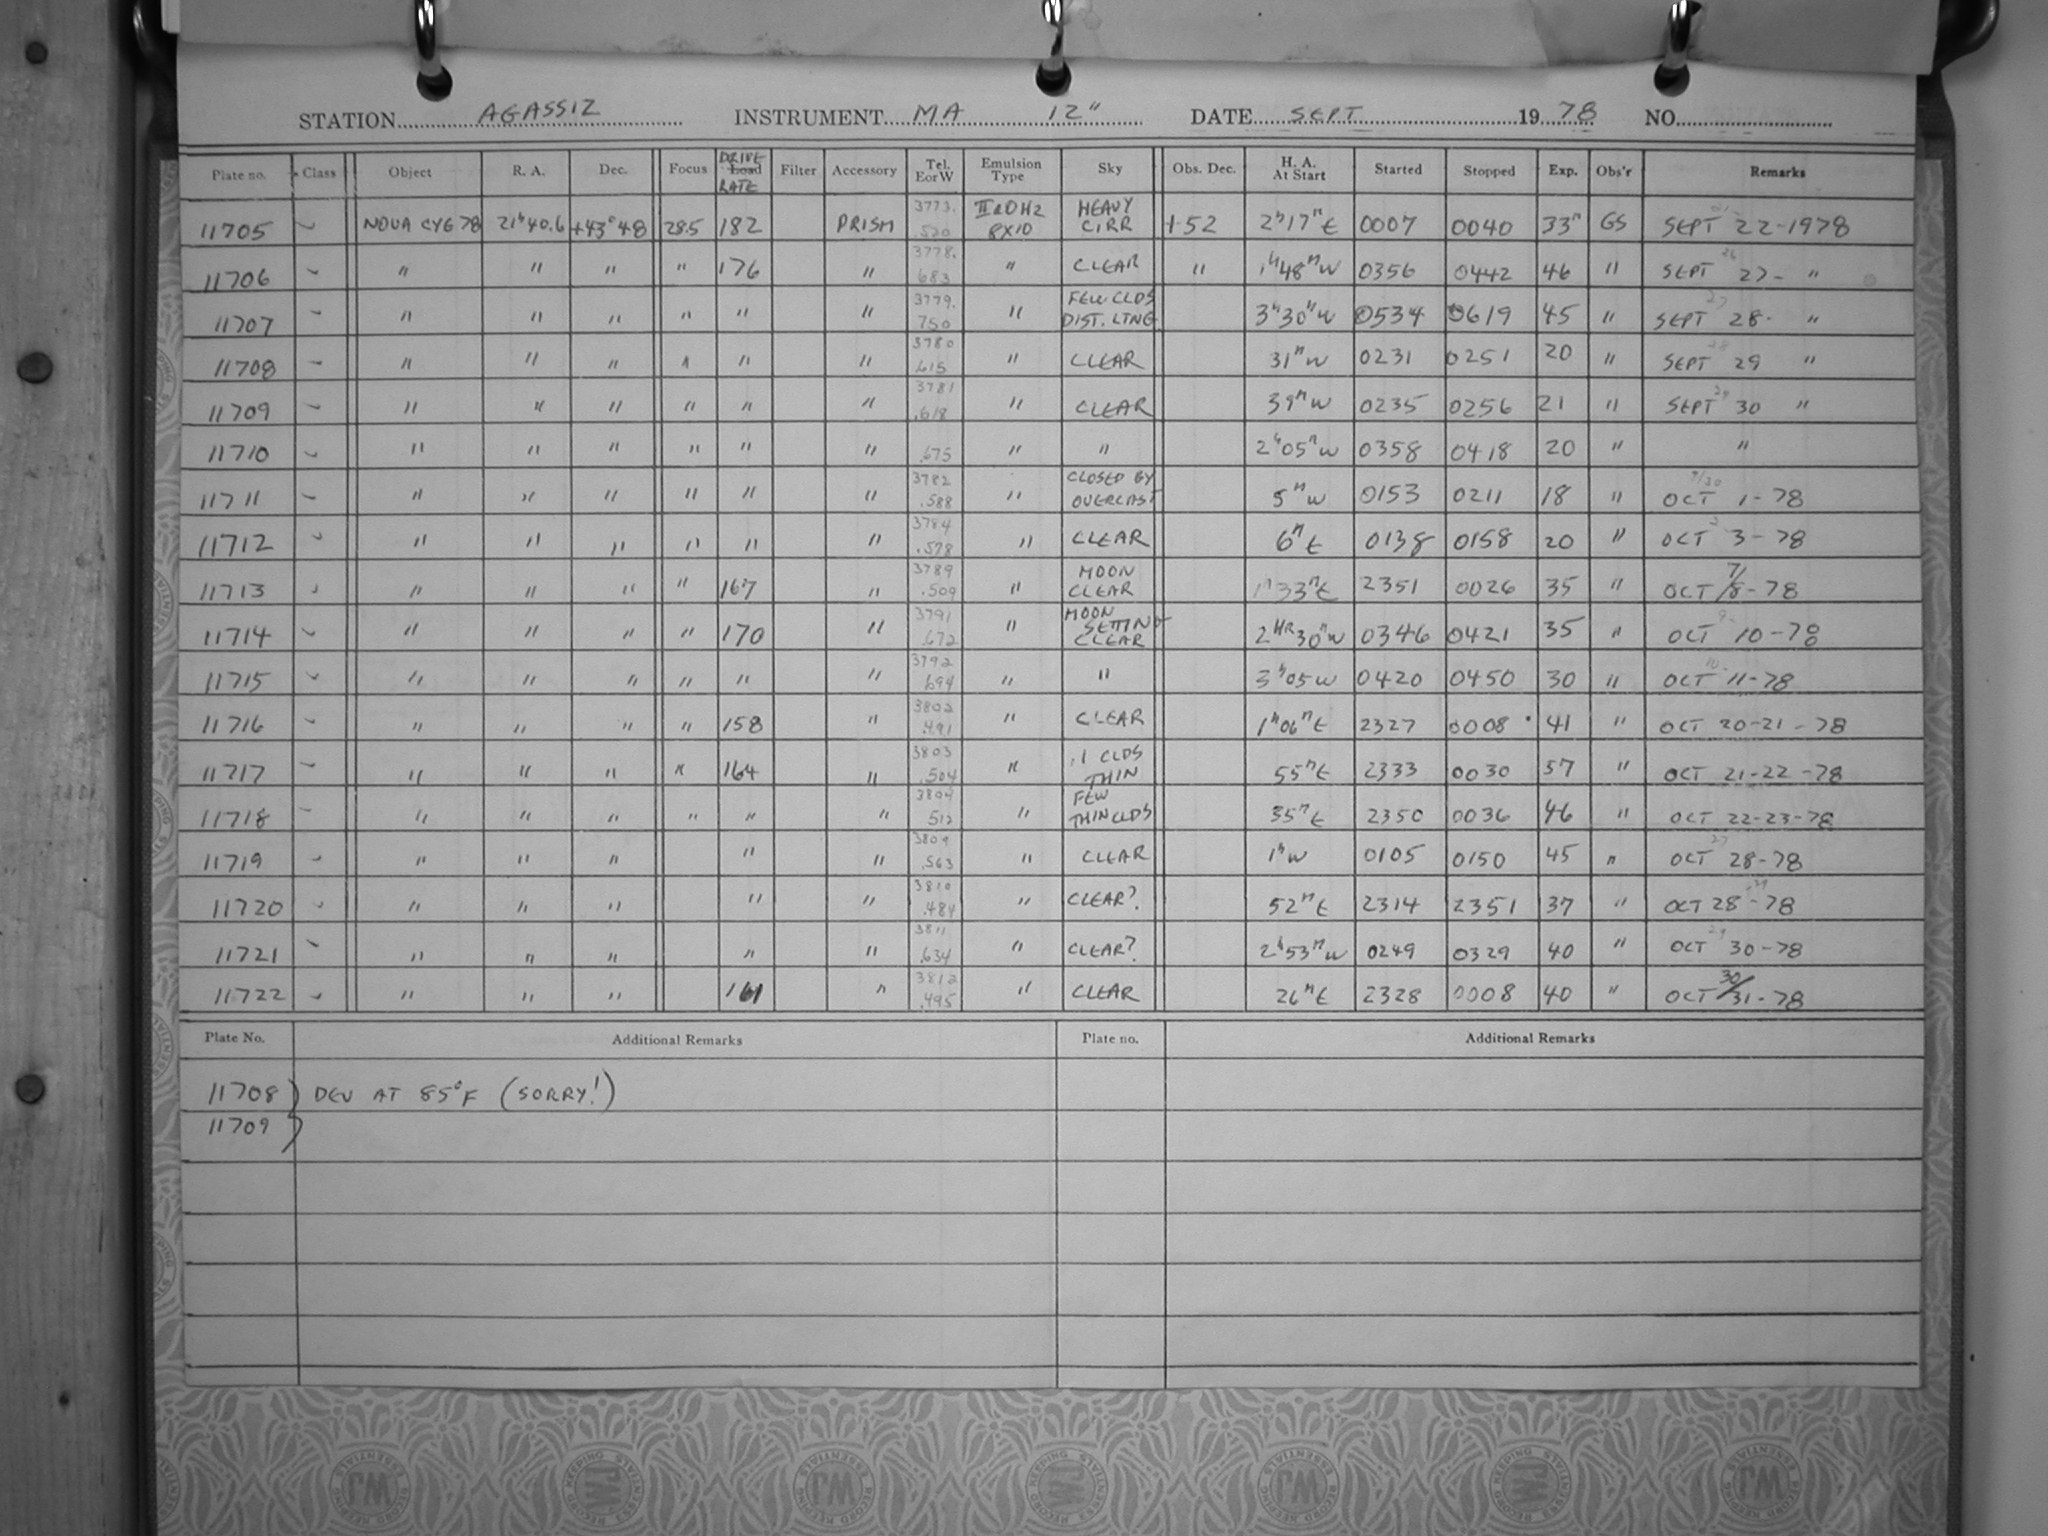 STATION AGASSIZ INSTRUMENT MA 12" DATE SEPT 1978 NO.
Plate no. Class Object R. A. Dec. Focus DRIVE Load RATE Filter Accessory Tel. EorW Emulsion Type Sky Obs. Dec. H. A. At Start Started Stopped Exp. Obs'r Remarks
11705 ✓ NOVA CYG 78 21h40.6 +43°48 28.5 182 PRISM 3773. .520 IIaOH2 8X10 HEAVY CIRR +52 2h17m E 0007 0040 33m GS SEPT 22-1978
11706 ✓ " " " " 176 " 3778. 683 " CLEAR " 1h48m W 0356 0442 46 " SEPT 26 27- "
11707 ✓ " " " " " " 3779. 750 " FEW CLDS DIST. LTNG 3h30m W 0534 0619 45 " SEPT 27 28- "
11708 ✓ " " " " " " 3780 .615 " CLEAR 31m W 0231 0251 20 " SEPT 28 29 "
11709 ✓ " " " " " " 3781 .618 " CLEAR 39m W 0235 0256 21 " SEPT 29 30 "
11710 ✓ " " " " " " .675 " " 2h05m W 0358 0418 20 " "
11711 ✓ " " " " " " 3782 .588 " CLOSED BY OVERCAST 5m W 0153 0211 18 " 9/30 OCT 1-78
11712 ✓ " " " " " " 3784 .578 " CLEAR 6m E 0138 0158 20 " OCT 2 3-78
11713 ✓ " " " " 167 " 3789 .509 " MOON CLEAR 1h33m E 2351 0026 35 " OCT 7/8-78
11714 ✓ " " " " 170 " 3791 .672 " MOON SETTING CLEAR 2HR30m W 0346 0421 35 " OCT 9 10-78
11715 ✓ " " " " " " 3792 .694 " " 3h05 W 0420 0450 30 " OCT 10 11-78
11716 ✓ " " " " 158 " 3802 .491 " CLEAR 1h06m E 2327 0008 41 " OCT 20-21-78
11717 ✓ " " " " 164 " 3803 .504 " .1 CLDS THIN 55m E 2333 0030 57 " OCT 21-22-78
11718 ✓ " " " " " " 3804 512 " FEW THIN CLDS 35m E 2350 0036 46 " OCT 22-23-78
11719 ✓ " " " " " 3809 .563 " CLEAR 1h W 0105 0150 45 " OCT 27 28-78
11720 ✓ " " " " " 3810 .484 " CLEAR? 52m E 2314 2351 37 " OCT 28-29-78
11721 ✓ " " " " " 3811 .634 " CLEAR? 2h53m W 0249 0329 40 " OCT 29 30-78
11722 ✓ " " " 161 " 3812 .495 " CLEAR 26m E 2328 0008 40 " OCT 30/31-78
Plate No. Additional Remarks Plate no. Additional Remarks
11708 } DEV AT 85°F (SORRY!)
11709